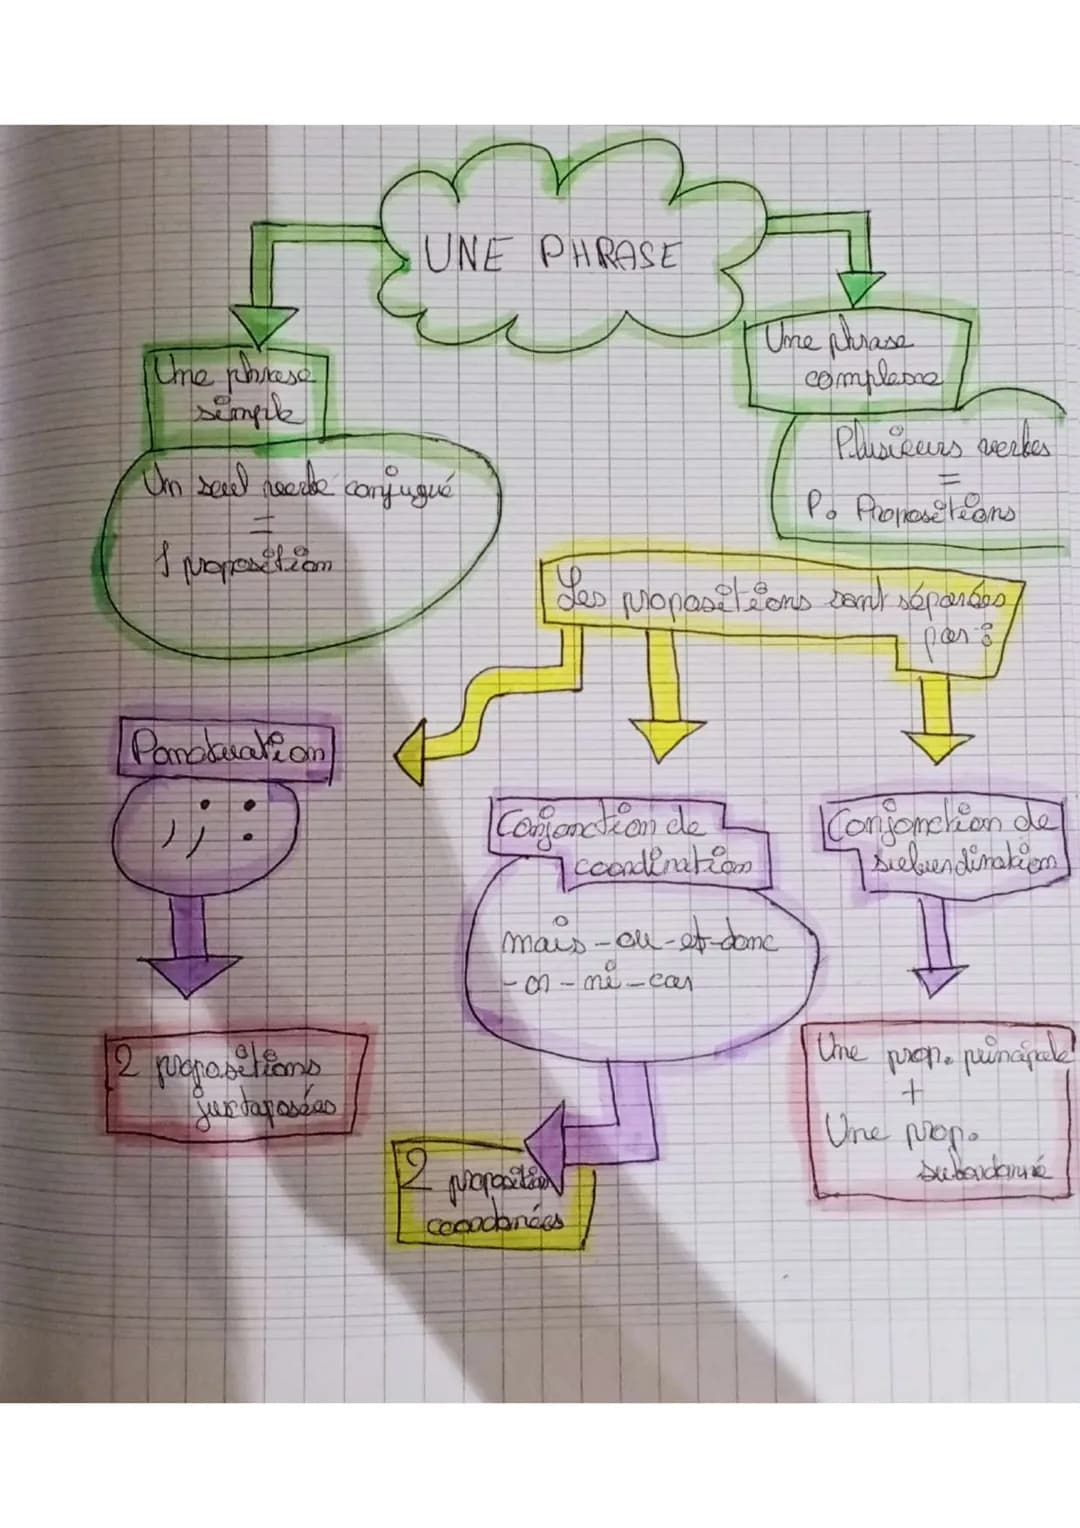 UNE PHRASE
Une phrase
simple
Un seul verbe conjugué
=
1 proposition
Une phrase
complexe
Plusieurs verbes
=
P. Propositions
Les propositions sont séparées
par :
Ponctuation
, ; :
2 propositions
juxtaposées
Conjonction de
coordination
mais - ou - et - donc
- or - ni - car
2 proposition
coordonées
Conjonction de
subordination
Une prop. principale
+
Une prop.
subordonné